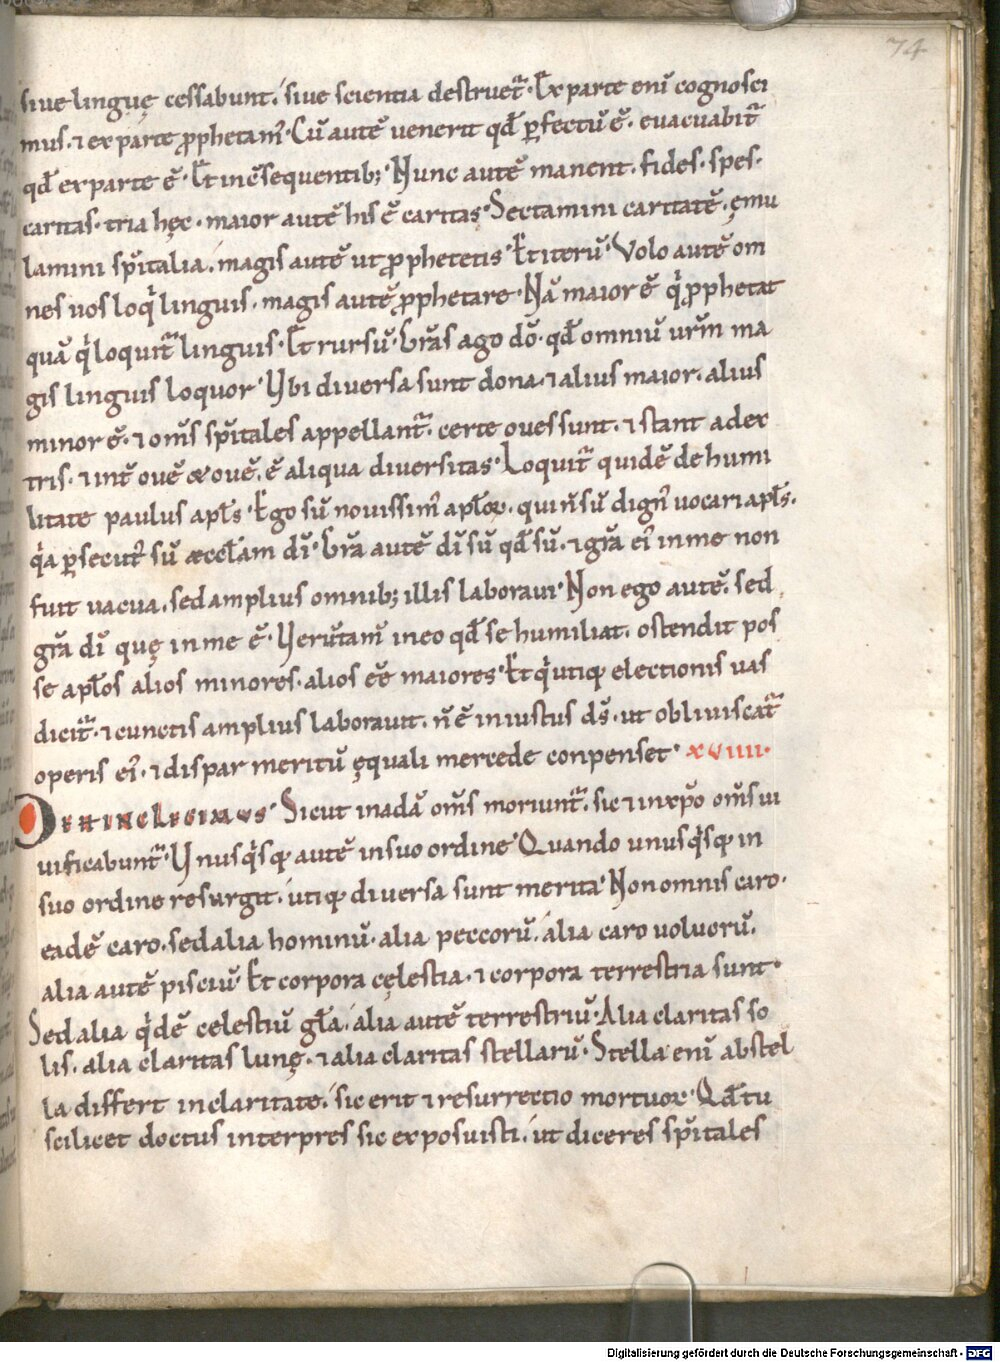 74
siue linguę cessabunt. siue scientia destruet᷑. Ex parte eni᷑ cognosci
mus. ⁊ ex parte ꝓphetam᷒. Cū autē uenerit qđ ꝑfectū ē. euacuabit᷑
qđ ex parte ē. Et in c̄sequentib; Nunc autē manent. fides. spes.
caritas. tria hęc. maior autē his ē caritas. Sectamini caritatē. ęmu
lamini sp̄italia. magis autē ut ꝓphetetis. Et iterū. Volo autē om
nes uos loqͥ linguis. magis autē ꝓphetare. Nā maior ē qͥ ꝓphetat
quā qͥ loquit᷑ linguis. Et rursū. Gr̄as ago dō. qđ omniū ur̄m ma
gis linguis loquor. Vbi diuersa sunt dona. ⁊ alius maior. alius
minor ē. ⁊ om̄s sp̄itales appellant᷑. certe oues sunt. ⁊ stant a dex
tris. ⁊ int̄ ouē & ouē. ē aliqua diuersitas. Loquit᷑ quidē de humi
litate paulus apł̄s. Ego sū nouissim᷒ apł̄oꝝ. qui n̄ sū dign᷒ uocari apł̄s.
qͥa ꝑsecut᷒ sū æccł̄am dī. Gr̄a autē dī sū qđ sū. ⁊ gr̄a ei᷒ in me non
fuit uacua. sed amplius omnib; illis laboraui. Non ego autē. sed
gr̄a dī quę in me ē. Verūtam̄ in eo qđ se humiliat. ostendit pos
se apł̄os alios minores. alios eē maiores. Et qͥ utiqꝫ electionis uas
dicit᷑. ⁊ cunctis amplius laborauit. n̄ ē iniustus ds̄. ut obliuiscat᷑
operis ei᷒. ⁊ dispar meritū ęquali mercede conpenset. xviiii.
Sicut in adā om̄s moriunt᷑. sic ⁊ in xp̄o om̄s ui
uificabunt᷑. Vnusqͥsqꝫ autē in suo ordine. Quando unusqͥsqꝫ in
suo ordine resurgit. utiqꝫ diuersa sunt merita. Non omnis caro.
eadē caro. sed alia hominū. alia peccorū. alia caro uolucrū.
alia autē pisciū. Et corpora cęlestia. ⁊ corpora terrestria sunt.
Sed alia qͥdē celestiū gł̄a. alia autē terrestriū. Alia claritas so
lis. alia claritas lunę. ⁊ alia claritas stellarū. Stella eni᷑ ab stel
la differt in claritate. sic erit ⁊ resurrectio mortuoꝝ. Qđ tu
scilicet doctus interpres sic exposuisti. ut diceres sp̄itales
Digitalisierung gefördert durch die Deutsche Forschungsgemeinschaft - DFG